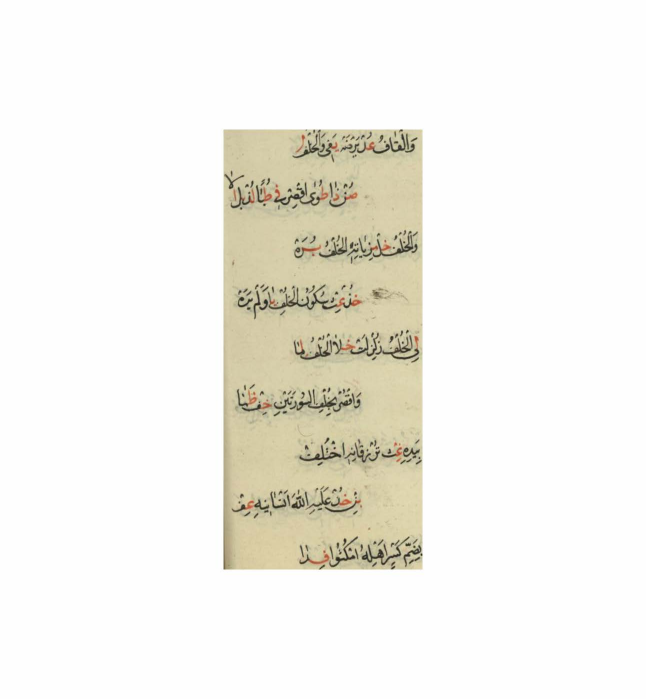 وَالْقَافُ عُدْ يَرْضَهُ يَفِي وَالْخُلْفُ لَا
صُنْ ذَا طُوَى اقْصُرْ فِي ظُبًا لُذْ نَلْ أَلَا
وَالْخُلْفُ خَلْ مِزْ يَأْتِهِ الْخُلْفُ بُرَهْ
خُذْ غِثْ سُكُونُ الْخُلْفِ يَا وَلَمْ يَرَهْ
لِي الْخُلْفُ زُلْزِلَتْ خَلَا الْخُلْفُ لِمَا
وَاقْصُرْ بِخُلْفِ السُّورَتَيْنِ خِفْ ظَمَا
بِيَدِهِ غِثْ تُرْزَقَانِهِ اخْتُلِفْ
بِنْ خُذْ عَلَيْهِ اللهَ أَنْسَانِيهِ عِفْ
بِضَمِّ كَسْرٍ أَهْلِهِ امْكُثُوا فِدَا